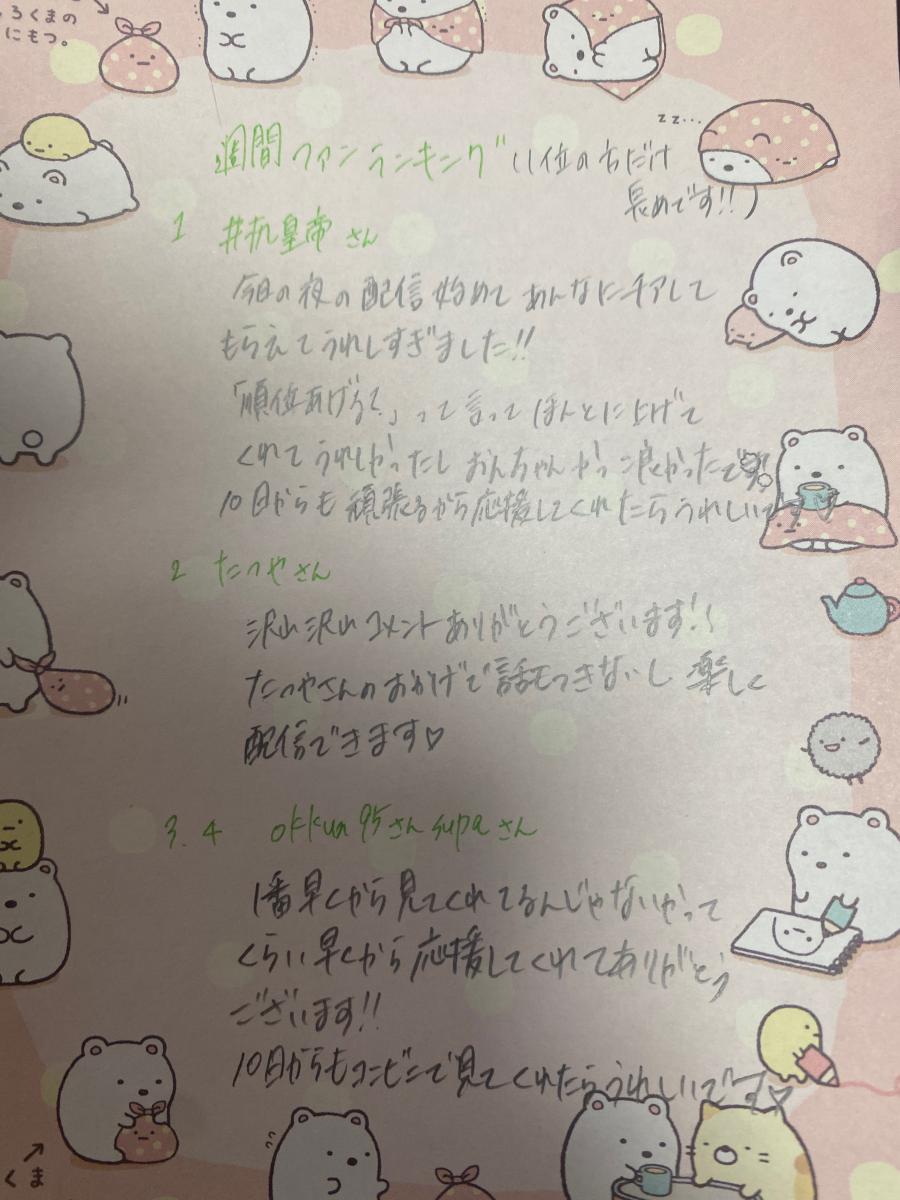 ろくまの
にもつ。
zz...
週間ファンランキング (1位の方だけ
長めです!!)
1 #杭皇帝さん
今日の夜の配信始めてあんなにチアして
もらえてうれしすぎました!!
「順位あげるで」って言ってほんとに上げて
くれてうれしかったし おんちゃんかっこ良かったです
10日からも頑張るから応援してくれたらうれしいです
2 たつやさん
沢山沢山コメントありがとうございます!!
たつやさんのおかげで話もつきないし楽しく
配信できます♡
3.4 okkun95さんsupaさん
1番早くから見てくれてるんじゃないかって
くらい早くから応援してくれてありがとう
ございます!!
10日からもコンビニで見てくれたらうれしいです♡
くま